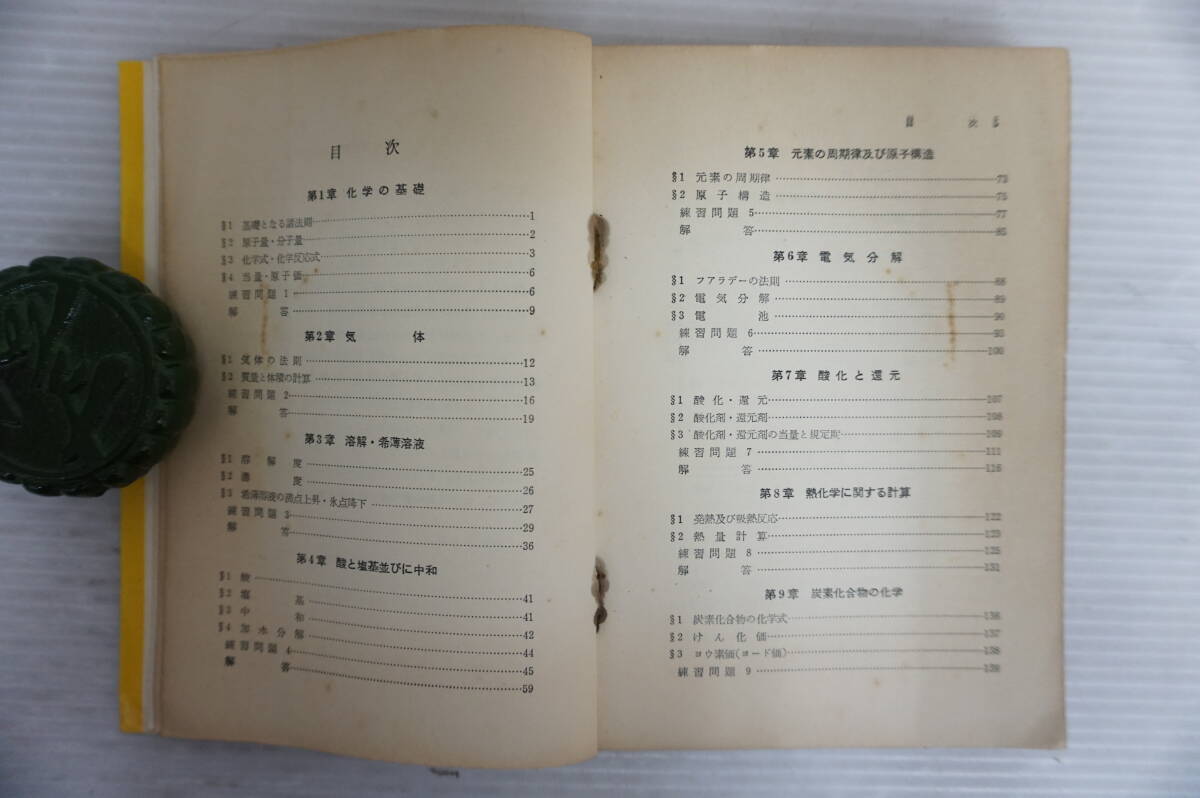 目 次
第1章 化学の基礎
§1 基礎となる諸法則……1
§2 原子量・分子量……2
§3 化学式・化学反応式……3
§4 当量・原子価……6
練習問題 1……6
解 答……9
第2章 気 体
§1 気体の法則……12
§2 質量と体積の計算……13
練習問題 2……16
解 答……19
第3章 溶解・希薄溶液
§1 溶解度……25
§2 濃 度……26
§3 希薄溶液の沸点上昇・氷点降下……27
練習問題 3……29
解 答……36
第4章 酸と塩基並びに中和
§1 酸……41
§2 塩 基……41
§3 中 和……42
§4 加水分解……44
練習問題 4……45
解 答……59
目 次
第5章 元素の周期律及び原子構造
§1 元素の周期律……73
§2 原子構造……75
練習問題 5……77
解 答……85
第6章 電気分解
§1 フアラデーの法則……88
§2 電気分解……89
§3 電 池……90
練習問題 6……93
解 答……100
第7章 酸化と還元
§1 酸化・還元……107
§2 酸化剤・還元剤……108
§3 酸化剤・還元剤の当量と規定度……109
練習問題 7……111
解 答……116
第8章 熱化学に関する計算
§1 発熱及び吸熱反応……122
§2 熱量計算……123
練習問題 8……125
解 答……131
第9章 炭素化合物の化学
§1 炭素化合物の化学式……136
§2 けん化価……137
§3 ヨウ素価(ヨード価)……138
練習問題 9……139